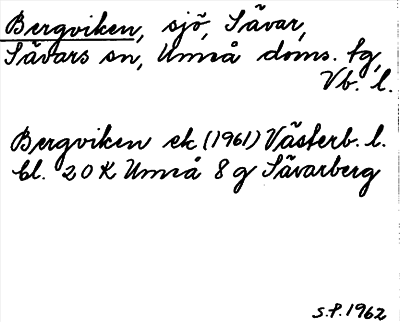 Bergviken, sjö, Sävar,
Sävars sn, Umeå doms. tg,
Vb. l.
Bergviken ek (1961) Västerb. l.
bl. 20 K Umeå 8 g Sävarberg
S.P. 1962